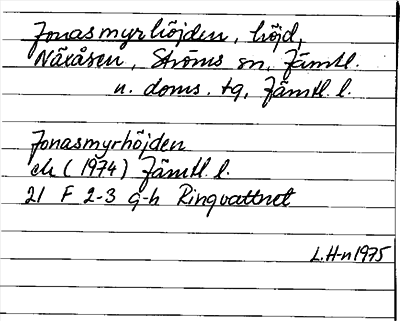 Jonasmyrhöjden, höjd,
Näxåsen, Ströms sn, Jämtl.
n. doms. tg, Jämtl. l.
Jonasmyrhöjden
ek (1974) Jämtl. l.
21 F 2-3 g-h Ringvattnet
L.H-n 1975